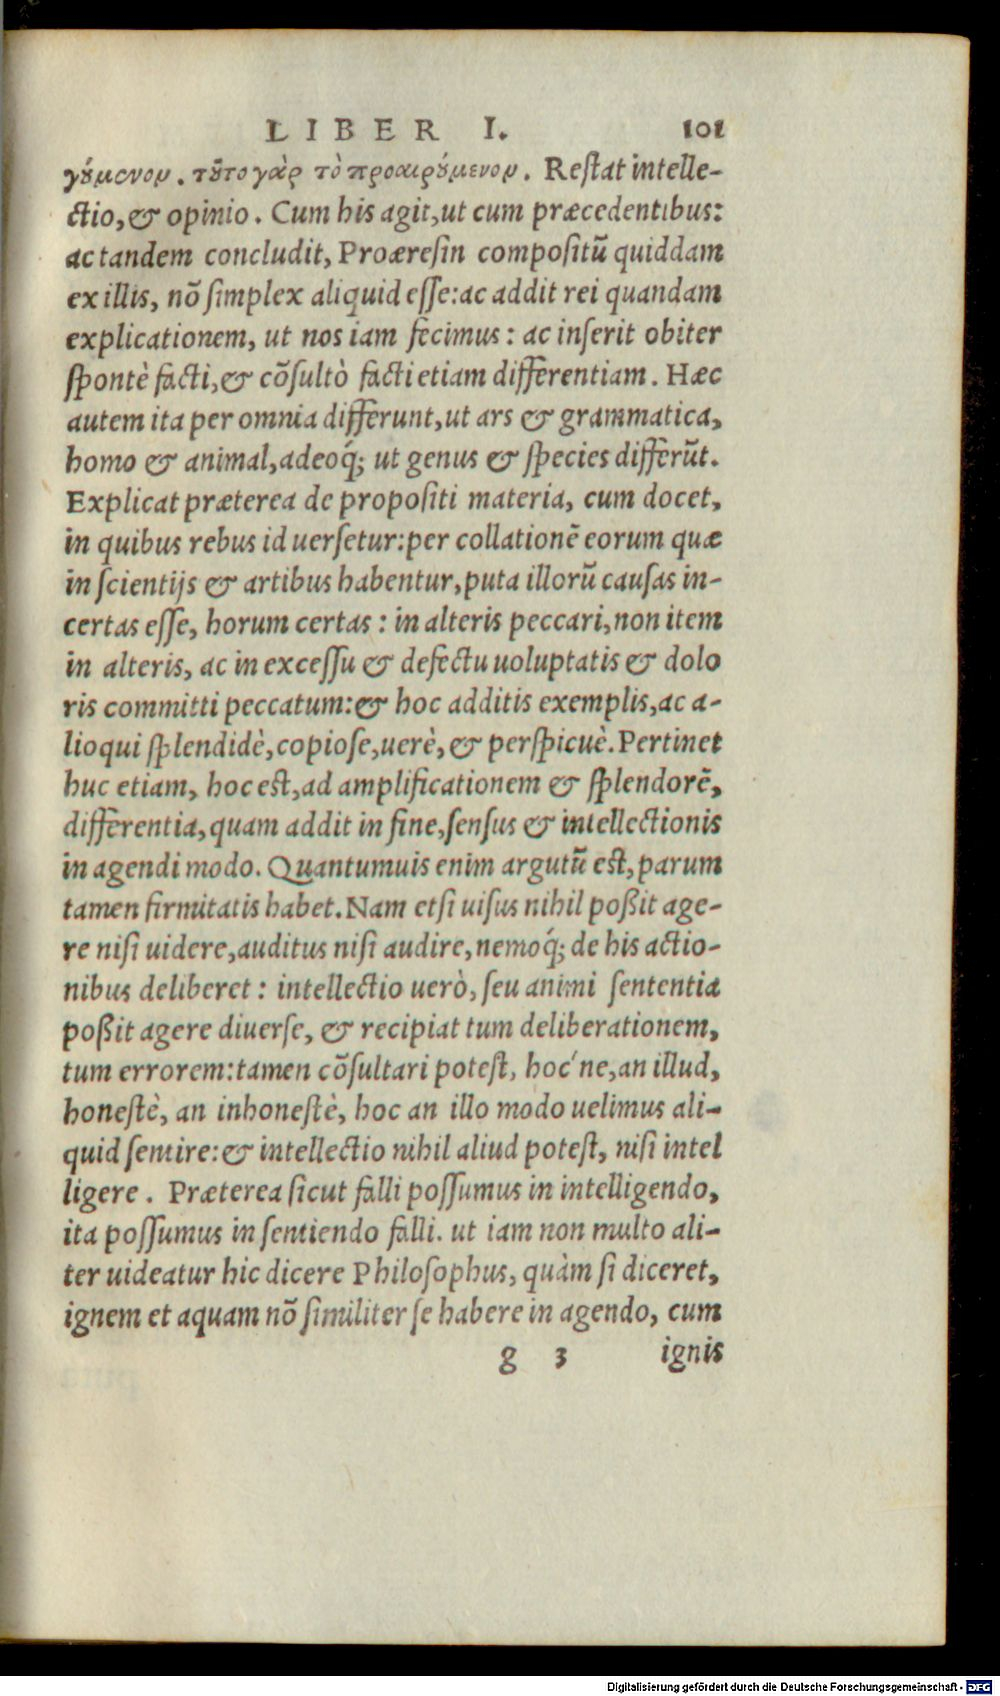 LIBER I. 101
γούμενον. τοῦτο γὰρ τὸ προαιρούμενον. Restat intelle-
ctio, & opinio. Cum his agit, ut cum præcedentibus:
ac tandem concludit, Proæresin compositũ quiddam
ex illis, nõ simplex aliquid esse: ac addit rei quandam
explicationem, ut nos iam fecimus: ac inserit obiter
spontè facti, & cõsultò facti etiam differentiam. Hæc
autem ita per omnia differunt, ut ars & grammatica,
homo & animal, adeoq́; ut genus & species differũt.
Explicat præterea de propositi materia, cum docet,
in quibus rebus id uersetur: per collationẽ eorum quæ
in scientijs & artibus habentur, puta illorũ causas in-
certas esse, horum certas: in alteris peccari, non item
in alteris, ac in excessu & defectu uoluptatis & dolo
ris committi peccatum: & hoc additis exemplis, ac a-
lioqui splendidè, copiose, uerè, & perspicuè. Pertinet
huc etiam, hoc est, ad amplificationem & splendorẽ,
differentia, quam addit in fine, sensus & intellectionis
in agendi modo. Quantumuis enim argutũ est, parum
tamen firmitatis habet. Nam etsi uisus nihil poßit age-
re nisi uidere, auditus nisi audire, nemoq́; de his actio-
nibus deliberet: intellectio uerò, seu animi sententia
poßit agere diuerse, & recipiat tum deliberationem,
tum errorem: tamen cõsultari potest, hoc'ne, an illud,
honestè, an inhonestè, hoc an illo modo uelimus ali-
quid sentire: & intellectio nihil aliud potest, nisi intel
ligere. Præterea sicut falli possumus in intelligendo,
ita possumus in sentiendo falli. ut iam non multo ali-
ter uideatur hic dicere Philosophus, quàm si diceret,
ignem et aquam nõ similiter se habere in agendo, cum
g 3 ignis
Digitalisierung gefördert durch die Deutsche Forschungsgemeinschaft - DFG